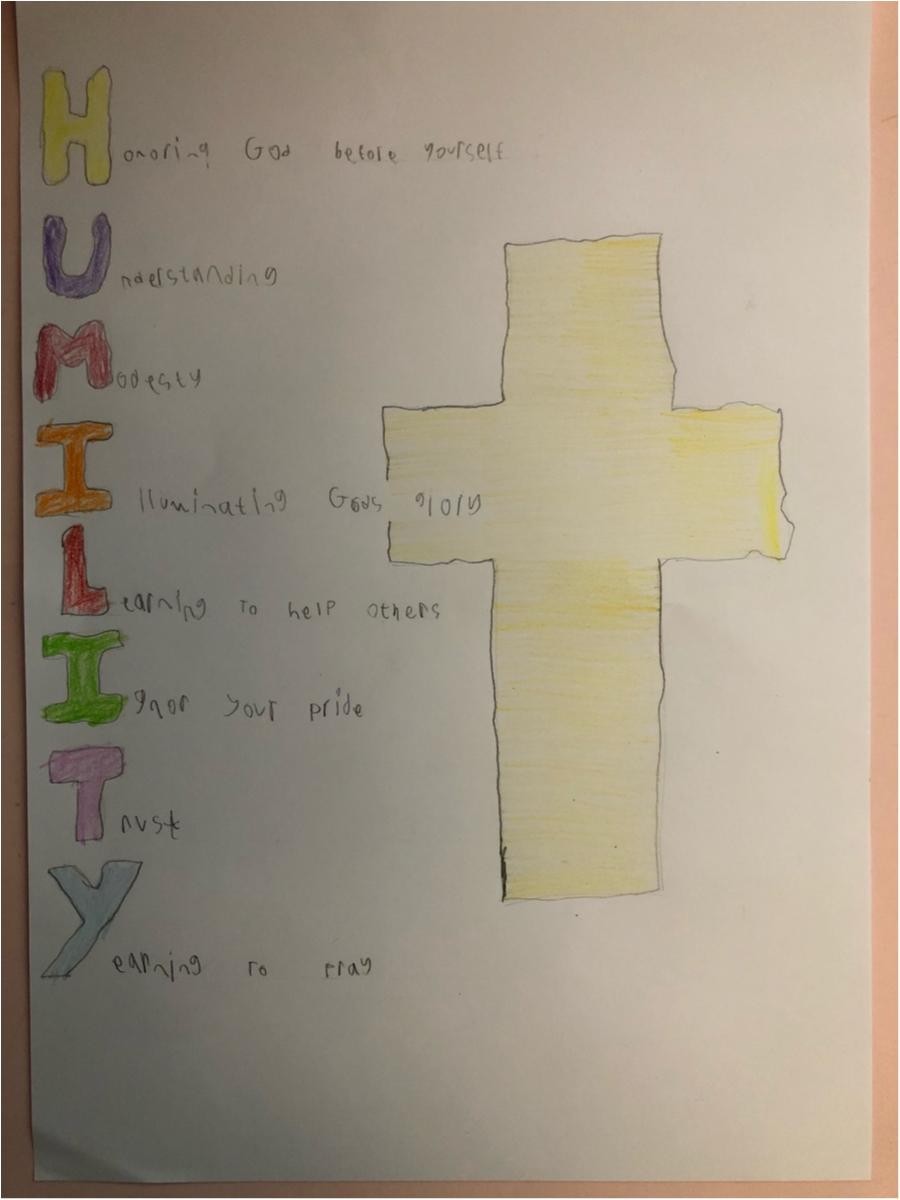 Honoring God before yourself
Understanding
Modesty
Illuminating Gods glory
Learning to help others
Ignor your pride
Trust
Yearning to pray